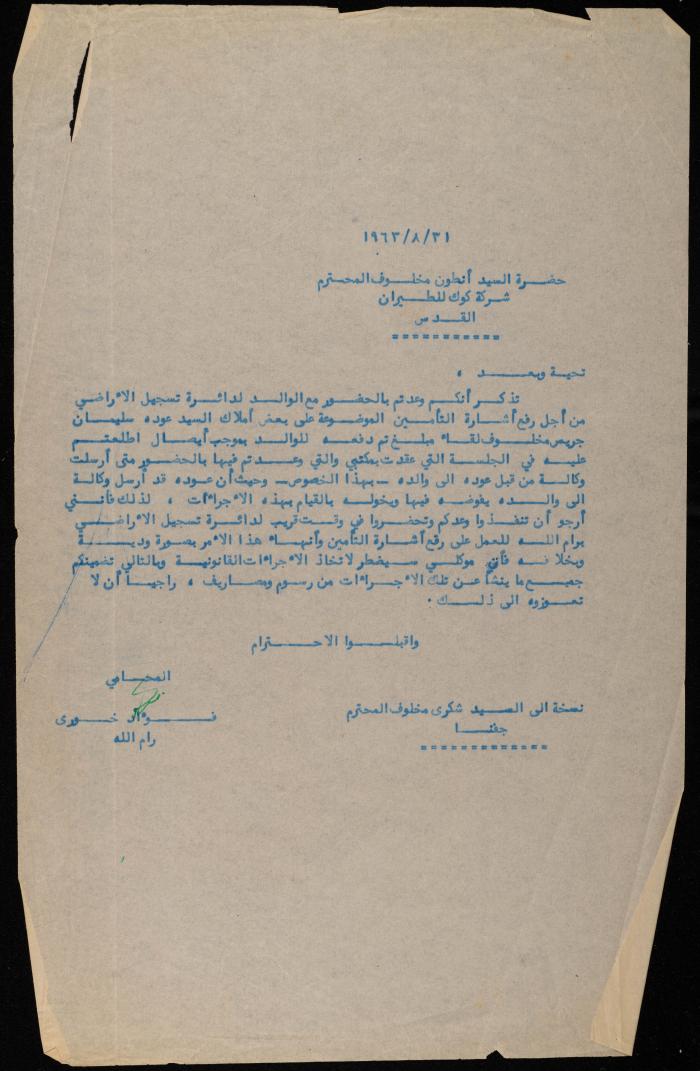 ١٩٦٣/٨/٣١
حضرة السيد أنطون مخلوف المحترم
شركة كوك للطيران
القدس
===========
تحية وبعد ،
تذكر أنكم وعدتم بالحضور مع الوالد لدائرة تسجيل الاراضي
من أجل رفع أشارة التأمين الموضوعة على بعض أملاك السيد عوده سليمان
جريس مخلوف لقاء مبلغ تم دفعه للوالد بموجب أيصال اطلعتم
عليه في الجلسة التي عقدت بمكتبي والتي وعدتم فيها بالحضور متى أرسلت
وكالة من قبل عوده الى والده - بهذا الخصوص - وحيث أن عوده قد أرسل وكالة
الى والده يفوضه فيها ويخوله بالقيام بهذه الاجراءات ، لذلك فأنني
أرجو أن تنفذوا وعدكم وتحضروا في وقت قريب لدائرة تسجيل الاراضي
برام الله للعمل على رفع أشارة التأمين وأنهاء هذا الامر بصورة ودية
وبخلافه فأن موكلي سيضطر لاتخاذ الاجراءات القانونية وبالتالي تضمينكم
جميع ما ينشأ عن تلك الاجراءات من رسوم ومصاريف ، راجيا أن لا
تعوزوه الى ذلك .
واقبلوا الاحترام
المحامي
فؤاد خورى
رام الله
نسخة الى السيد شكرى مخلوف المحترم
جفنا
=============